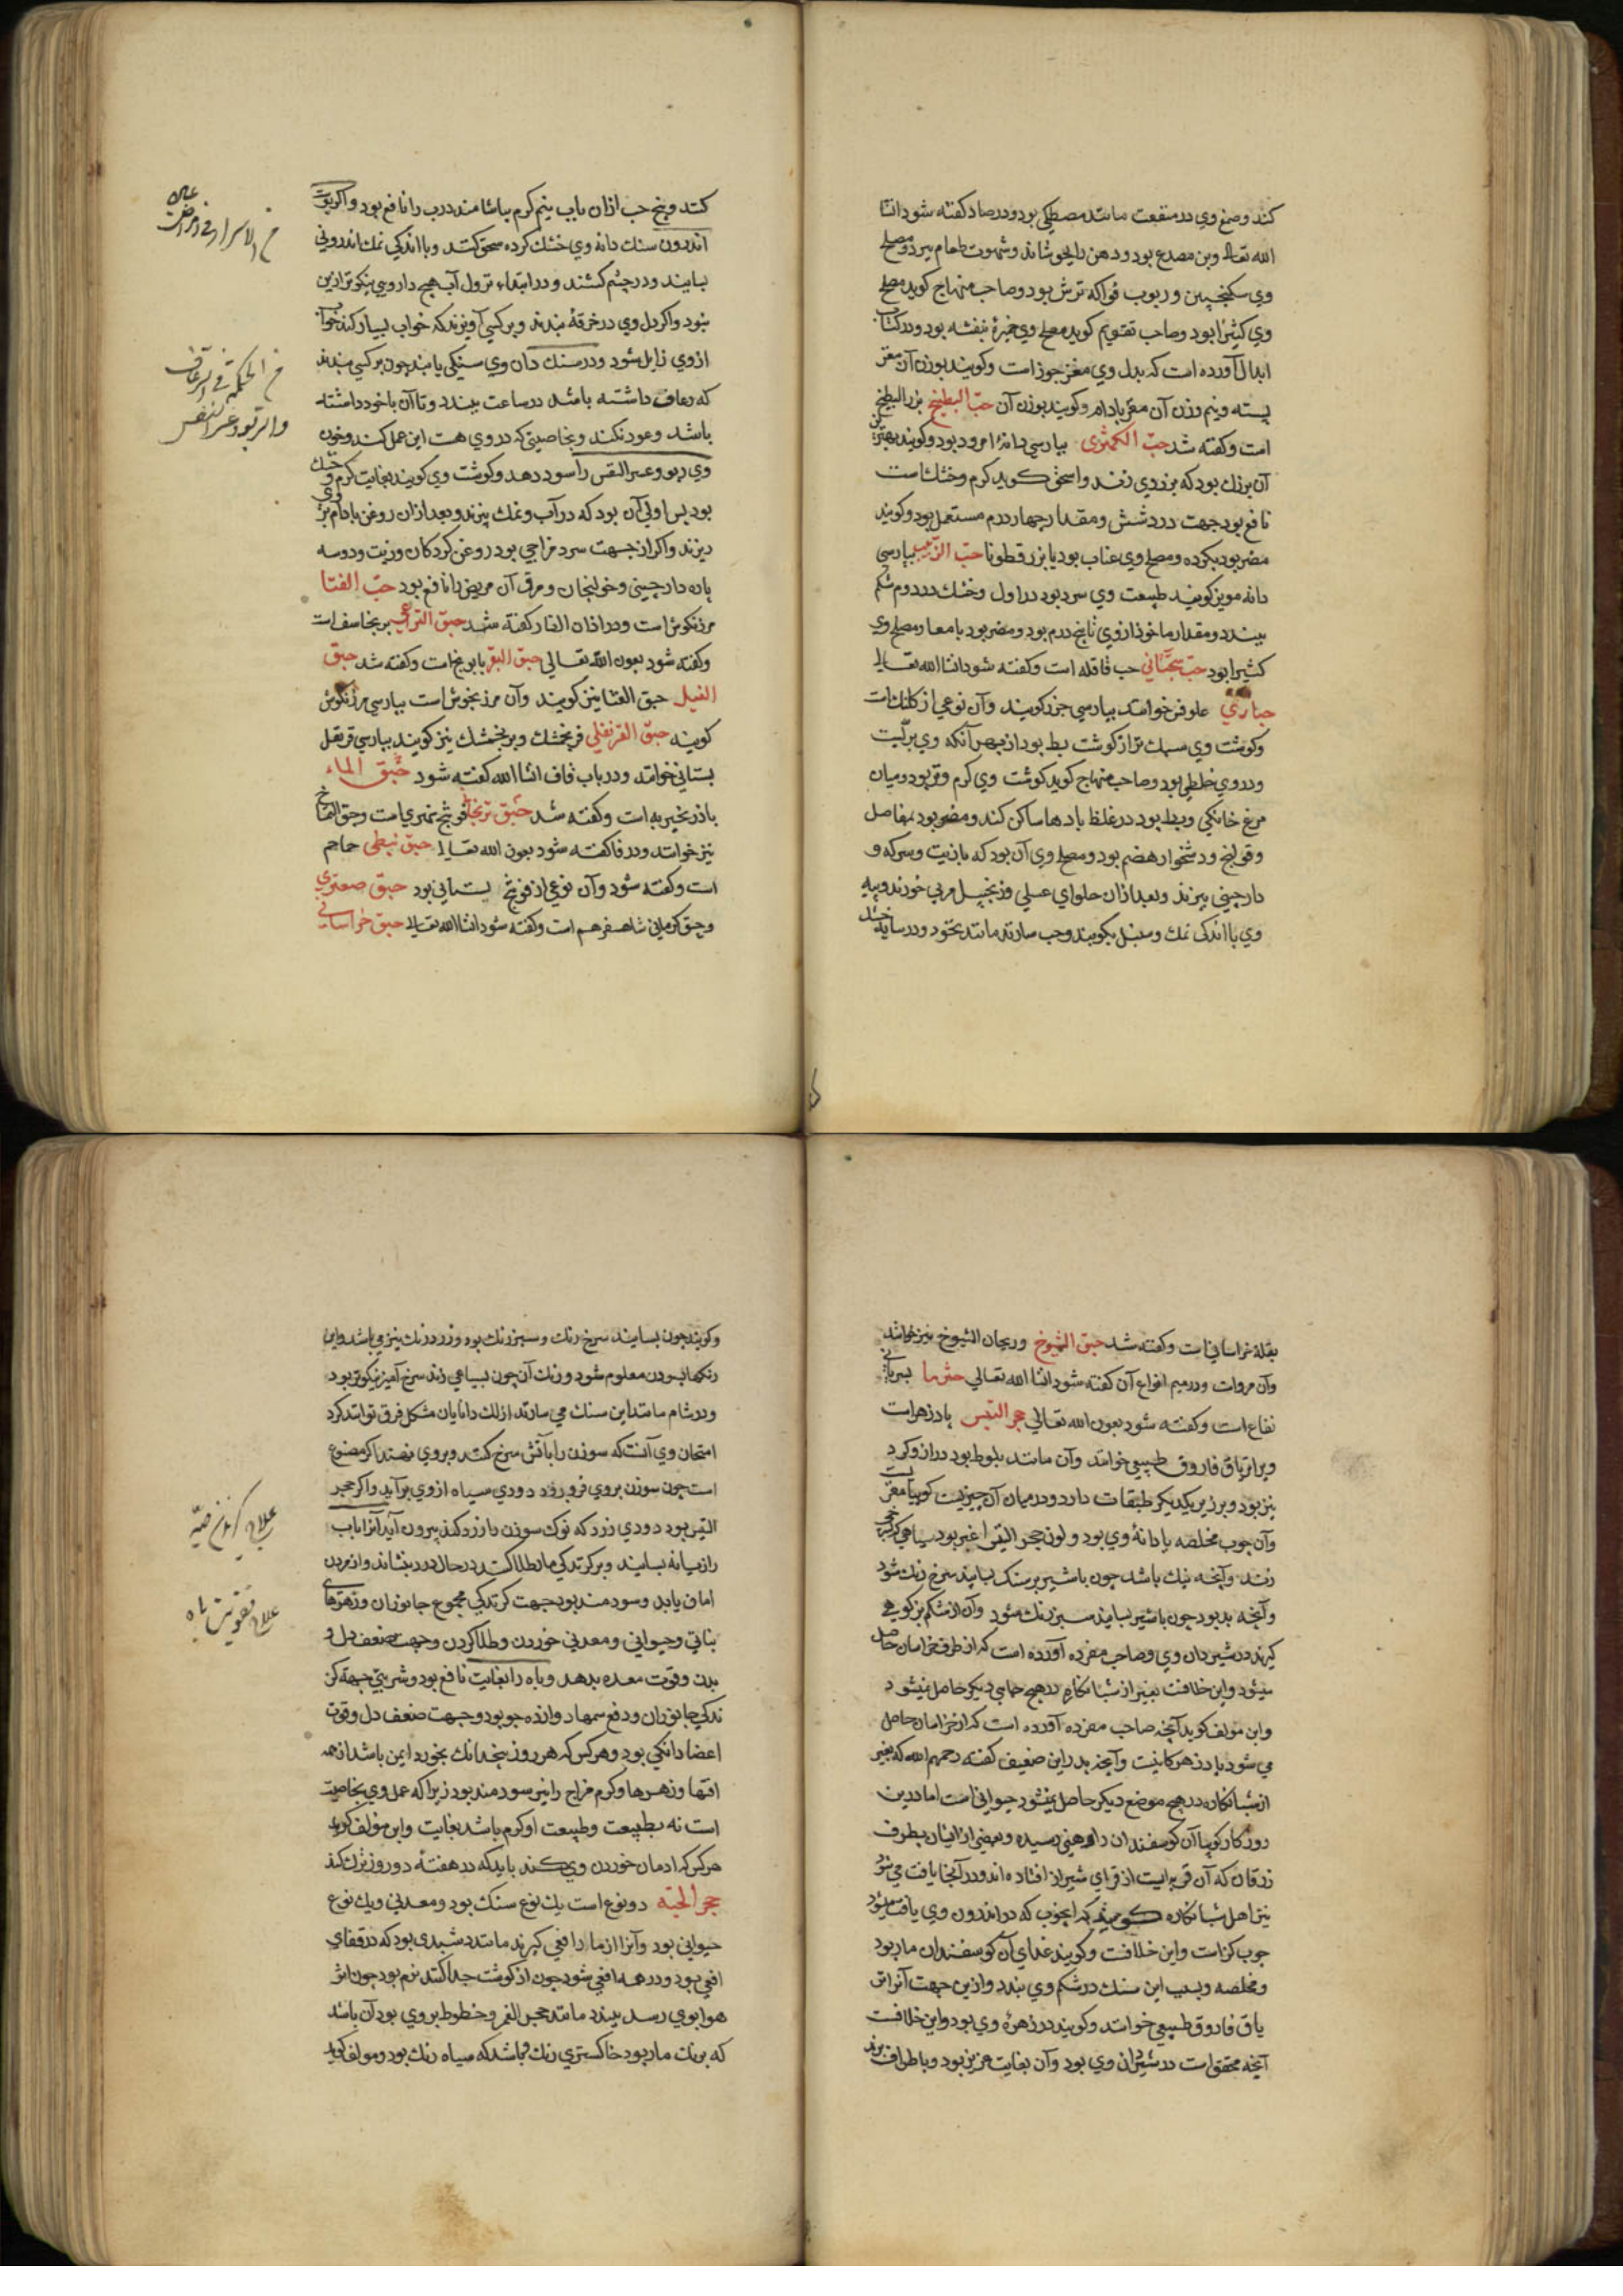 کند وصمغ وی در منفعت مانند مصطکی بود و در صاد کفته شود انشا
الله تعالی وبن مصدع بود و دهن را بجوشاند وشهوت طعام ببرد ومصلح
وی سکنجبین و ربوب فواکه ترش بود وصاحب منهاج کوید مصلح
وی کثیرا بود وصاحب تقویم کوید مصلح وی خمیرۀ بنفشه بود ودر کتاب
ابدال آورده است که بدل وی مغز جوز است وکویند بوزن آن مغز
پسته ونیم وزن آن مغز بادام وکویند بوزن آن حبّ البطیخ بزر البطیخ
است وکفته شد حبّ الکمثری بپارسی دانۀ امرود بود وکویند بهترین
آن بزرك بود که بزردی زند واسحق کوید کرم وخشك است
نافع بود جهت درد شش ومقدار چهار درم مستعمل بود وکویند
مضر بود بکرده ومصلح وی عناب بود یا بزر قطونا حبّ الزبیب بپارسی
دانه مویز کویند طبیعت وی سرد بود در اول وخشك در دوم شکم
ببندد ومقدار ماخوذ از وی تا پنج درم بود ومضر بود بامعا ومصلح وی
کثیرا بود حبّ سجستانی حب قاقله است وکفته شود انشا الله تعالی
حباری علوفن خوانند بپارسی جرز کویند وآن نوعی از کلنك است
وکوشت وی سبك تر از کوشت بط بود از بهر آنکه وی بریست
ودر وی خلطی بود وصاحب منهاج کوید کوشت وی کرم وتر بود ومیان
مرغ خانکی وبط بود در غلظ بادها ساکن کند ومضر بود بمفاصل
وقولنج ودشخوار هضم بود ومصلح وی آن بود که بازیت وسرکه و
دارچینی بپزند وبعد ازان حلوای عسلی وزنجبیل مربی خورند وپیه
وی با اندکی نمك وسنبل بکوبند وحب سازند مانند نخود ودر سایه خشك
کنند وپنج حب ازان بآب نیم کرم بیاشامند درب را نافع بود واکر پوست
اندرون سنك دانه وی خشك کرده سحق کنند وبا اندکی نمك اندرونی
بسایند ودر چشم کشند ودر ابتداء نزول آب هیچ داروی نیکوتر ازین
نبود واکر دل وی در خرقۀ بندند وبر کسی آویزند که خواب بسیار کند خواب
از وی زایل شود ودر سنك دان وی سنکی یابند چون بر کسی بندند
که رعاف داشته باشد در ساعت ببندد وتا آن با خود داشته
باشد وعود نکند وبخاصیتی که در وی هست این عمل کند وخون
وی ربو وعسر النفس را سود دهد وکوشت وی کویند بغایت کرم وخشك
بود پس اولی آن بود که در آب ونمك بپزند وبعد ازان روغن بادام بر وی
ریزند واکر از جهت سرد مزاجی بود روغن کردکان وزیت ودوسه
پاره دارچینی وخولنجان ومرق آن مریض را نافع بود حبّ الفتا
مرزنکوش است ودر اذان الفار کفته شد حبق التراعی برنجاسف است
وکفته شود بعون الله تعالی حبق البقر بابونج است وکفته شد حبق
الفیل حبق القثا نیز کویند وآن مرزنجوش است بپارسی مرزنکوش
کویند حبق القرنفلی فرنجمشك وبرنجمشك نیز کویند بپارسی قرنفل
بستانی خوانند ودر باب فاف انشا الله کفته شود حبق الماء
باذرنجبویه است وکفته شد حبق ترنجان فوتنج نهری است وحبق التمساح
نیز خوانند ودر فا کفته شود بعون الله تعالی حبق نبطی حماحم
است وکفته شود وآن نوعی از فوتنج بستانی بود حبق صعتری
وحبق کرمانی شاهسفرهم است وکفته شود انشا الله تعالی حبق خراسانی
بقلۀ خراسانی است وکفته شد حبق الشیوخ وریحان الشیوخ نیز خوانند
وآن مرو است ودر میم انواع آن کفته شود انشا الله تعالی
نفاع است وکفته شود بعون الله تعالی حجر التیس پادزهر است
وبرا تریاق فاروق طبیعی خوانند وآن مانند بلوط بود دراز وکرد
نیز بود وبر زیر یکدیکر طبقات دارد ودر میان آن چیزیست کوییا مغز
وآن چوب مخلصه یا دانۀ وی بود ولون حجر التیس اغبر بود
زند وآنچه نیك باشد چون با شیر بر سنك بسایند سرخ رنك شود
وآنچه بد بود چون با شیر بسایند سبز رنك شود وآن از شکم بز کوهی
کیرند در شیردان وی وصاحب مفرده آورده است که از طرف خراسان حاصل
میشود واین خلافست بغیر از شبانکاره در هیچ جای دیکر حاصل نمیشود
واین مولف کوید آنچه صاحب مفرده آورده است که از خراسان حاصل
می شود پادزهر کانیست وآنچه پدر این ضعیف کفته رحمهم الله که بغیر
از شبانکاره در هیچ موضع دیکر حاصل نمیشود حیوانی است اما درین
روزکار کوییا آن کوسفندان را وهنی رسیده وبعضی از ایشان بطرف
زرقان که آن قریه ایست از قرای شیراز افتاده اند ودر آنجا یافت می شود
نیز اهل شبانکاره کویند که آن چوب که در اندرون وی یافت میشود
چوب کز است واین خلافست وکویند غذای آن کوسفندان مار بود
ومخلصه وبسبب این سنك در شکم وی بندد وازین جهت آنرا تر
یاق فاروق طبیعی خوانند وکویند در زهرۀ وی بود واین خلافست
آنچه محقق است در شیردان وی بود وآن بغایت عزیز بود وباطراف برند
وکویند چون بسایند سرخ رنك وسبز رنك بود وزرد رنك نیز می باشد واین
رنکها بسودن معلوم شود ورنك آن چون بسیاهی زند سرخ آمیز نیکوتر بود
ودر شام مانند این سنك می سازند ازان دانایان مشکل فرق توانند کرد
امتحان وی آنست که سوزن را بآتش سرخ کنند وبر وی نهند اکر مصنوع
است چون سوزن بر وی فرو رود دودی سیاه از وی برآید واکر حجر
التیس بود دودی زرد که نوك سوزن را زرد کند بیرون آید آنرا با آب
رازیانه بسایند وبر کزندکی مار طلا کنند در حال درد بنشاند واز مردن
امان یابد وسودمند بود جهت کزندکی مجموع جانوران وزهرهای
نباتی وحیوانی ومعدنی خوردن وطلا کردن وجهت ضعف دل و
بدن وقوت معده بدهد وباه را بغایت نافع بود وشربتی جهت کز
ندکی جانوران ودفع سمها دوازده جو بود وجهت ضعف دل وقوت
اعضا دانکی بود وهر کس که هر روز نیم دانك بخورد ایمن باشد از همه
آفتها وزهرها وکرم مزاج را نیز سودمند بود زیرا که عمل وی بخاصیت
است نه بطبیعت وطبیعت او کرم باشد بغایت واین مؤلف کوید
هر کس که ادمان خوردن وی کند باید که در هفتۀ دو روز ترك کند
حجر الحیّه دو نوع است یك نوع سنك بود ومعدنی ویك نوع
حیوانی بود وآنرا از مار افعی کیرند مانند شبدی بود که در قفای
افعی بود ودر همه افعی شود چون از کوشت جدا کنند نرم بود چون اثر
هوا بوی رسد ببندد مانند حجر البقر وخطوط بر وی بود آن باشد
که برنك مار بود خاکستری رنك وباشد که سیاه رنك بود ومولف کوید
علاج
علاج تقویت باه